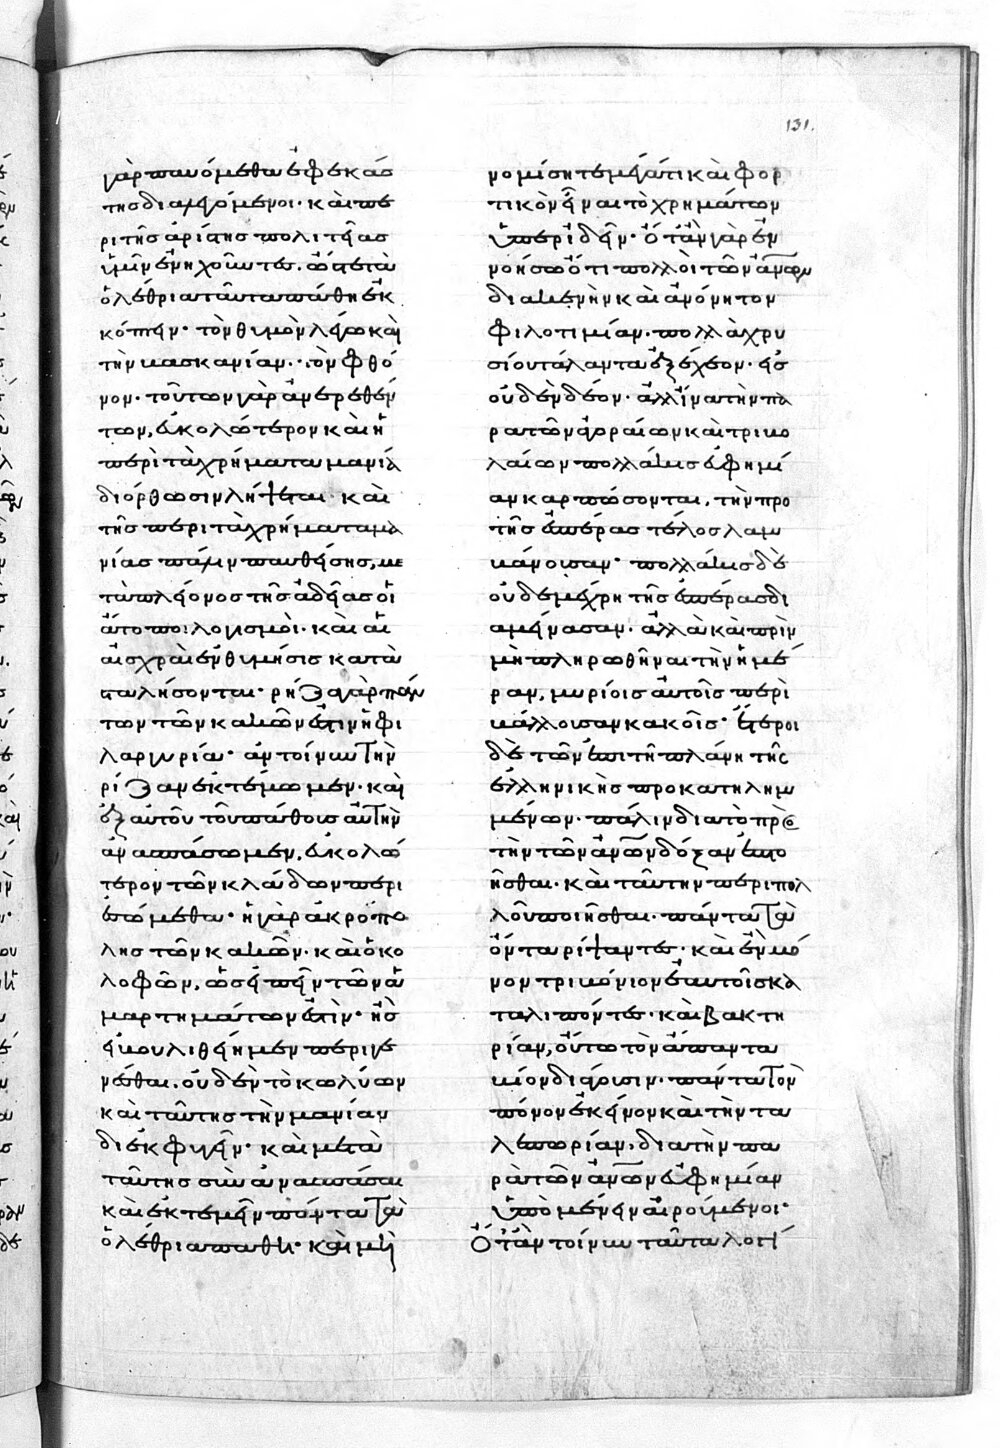 131.
γὰρ παυόμεθα ἐφ ἑκάσ
της διαλεγόμενοι· καὶ πε
ρὶ τῆς ἀρίστης πολιτείας
ὑμῖν ἐνηχοῦντες. ὥστε τὰ
ὀλέθρια ταῦτα πάθη ἐκ
κόπτειν· τὸν θυμὸν λέγω καὶ
τὴν βασκανίαν· τὸν φθό
νον· τούτων γὰρ ἀναιρεθέν
των, εὐκολώτερον καὶ ἡ
περὶ τὰ χρήματα μανία
διόρθωσιν λήψεται· καὶ
τῆς περὶ τὰ χρήματα μα
νίας πάλιν παυθείσης, με
τὰ πλείονος τῆς ἀδείας οἱ
ἄτοποι λογισμοὶ· καὶ αἱ
αἰσχραὶ ἐνθυμήσεις κατα
παλήσονται· ῥίζα γὰρ πάν
των τῶν κακῶν ἐστιν ἡ φι
λαργυρία· ἂν τοίνυν τὴν
ῥίζαν ἐκτέμωμεν· καὶ
ἐξ αὐτοῦ τοῦ πάθους αὐτὴν
ἀνασπάσωμεν, εὐκολώ
τερον τῶν κλάδων περι
εσόμεθα· ἡ γὰρ ἀκρόπο
λης τῶν κακῶν· καὶ ὁ κο
λοφῶν, ὡς εἰπεῖν τῶν ἁ
μαρτημάτων ἐστὶν· ἧς
εἰ βουληθείημεν περιγε
νέσθαι. οὐδὲν τὸ κωλύων
καὶ ταύτης τὴν μανίαν
διεκφυγεῖν· καὶ μετὰ
ταύτης συναναπάσαι
καὶ ἐκτεμεῖν πάντα τὰ
ὀλέθρια πάθη· καὶ μὴ
νομίσητε μέγά τι καὶ φορ
τικὸν εἶναι τὸ χρημάτων
ὑπεριδεῖν· ὅταν γὰρ ἐν
νοήσω ὅτι πολλοὶ τῶν ἀνων
διὰ κενὴν καὶ ἀνόνητον
φιλοτιμίαν· πολλὰ χρυ
σίου τάλαντα ἐξέχεον· εἰς
οὐδὲν δέον· ἀλλ ἵνα τὴν πα
ρὰ τῶν ἀγοραίων καὶ τρικο
λαίων πολλάκις εὐφημί
αν καρπώσονται, τὴν προ
τῆς ἑσπέρας τέλος λαμ
βάνουσαν· πολλάκις δὲ
οὐδε μέχρι τῆς ἑσπέρας δι
αμείνασαν· ἀλλὰ καὶ πρὶν
μὴ πληρωθῆναι τὴν ἡμέ
ραν, μυρίοις αὐτοῖς περι
βάλλουσαν κακοῖς· ἕτεροι
δὲ τῶν ἐπι τῇ πλάνη τῆς
ἑλληνικῆς προκατηλημ
μένων· πάλιν διὰ τὸ πρὸς
τὴν τῶν ἀνων δόξαν ἑπτο
ῆσθαι· καὶ ταύτην περὶ πολ
λοῦ ποιῆσθαι· πάντα τὰ
ὄντα ρίψαντες· καὶ ἓν μό
νον τριβώνιον ἑαυτοῖς κα
ταλιπόντες· καὶ βακτη
ρίαν, οὕτω τὸν ἅπαντα
βίον διάγουσιν· πάντα τὸν
πόνον ἐκεῖνον καὶ τὴν τα
λεπωρίαν, διὰ τὴν πα
ρὰ τῶν ἀνων εὐφημίαν
ὑπομένειν αἱρούμενοι·
Ὅταν τοίνυν ταῦτα λογί